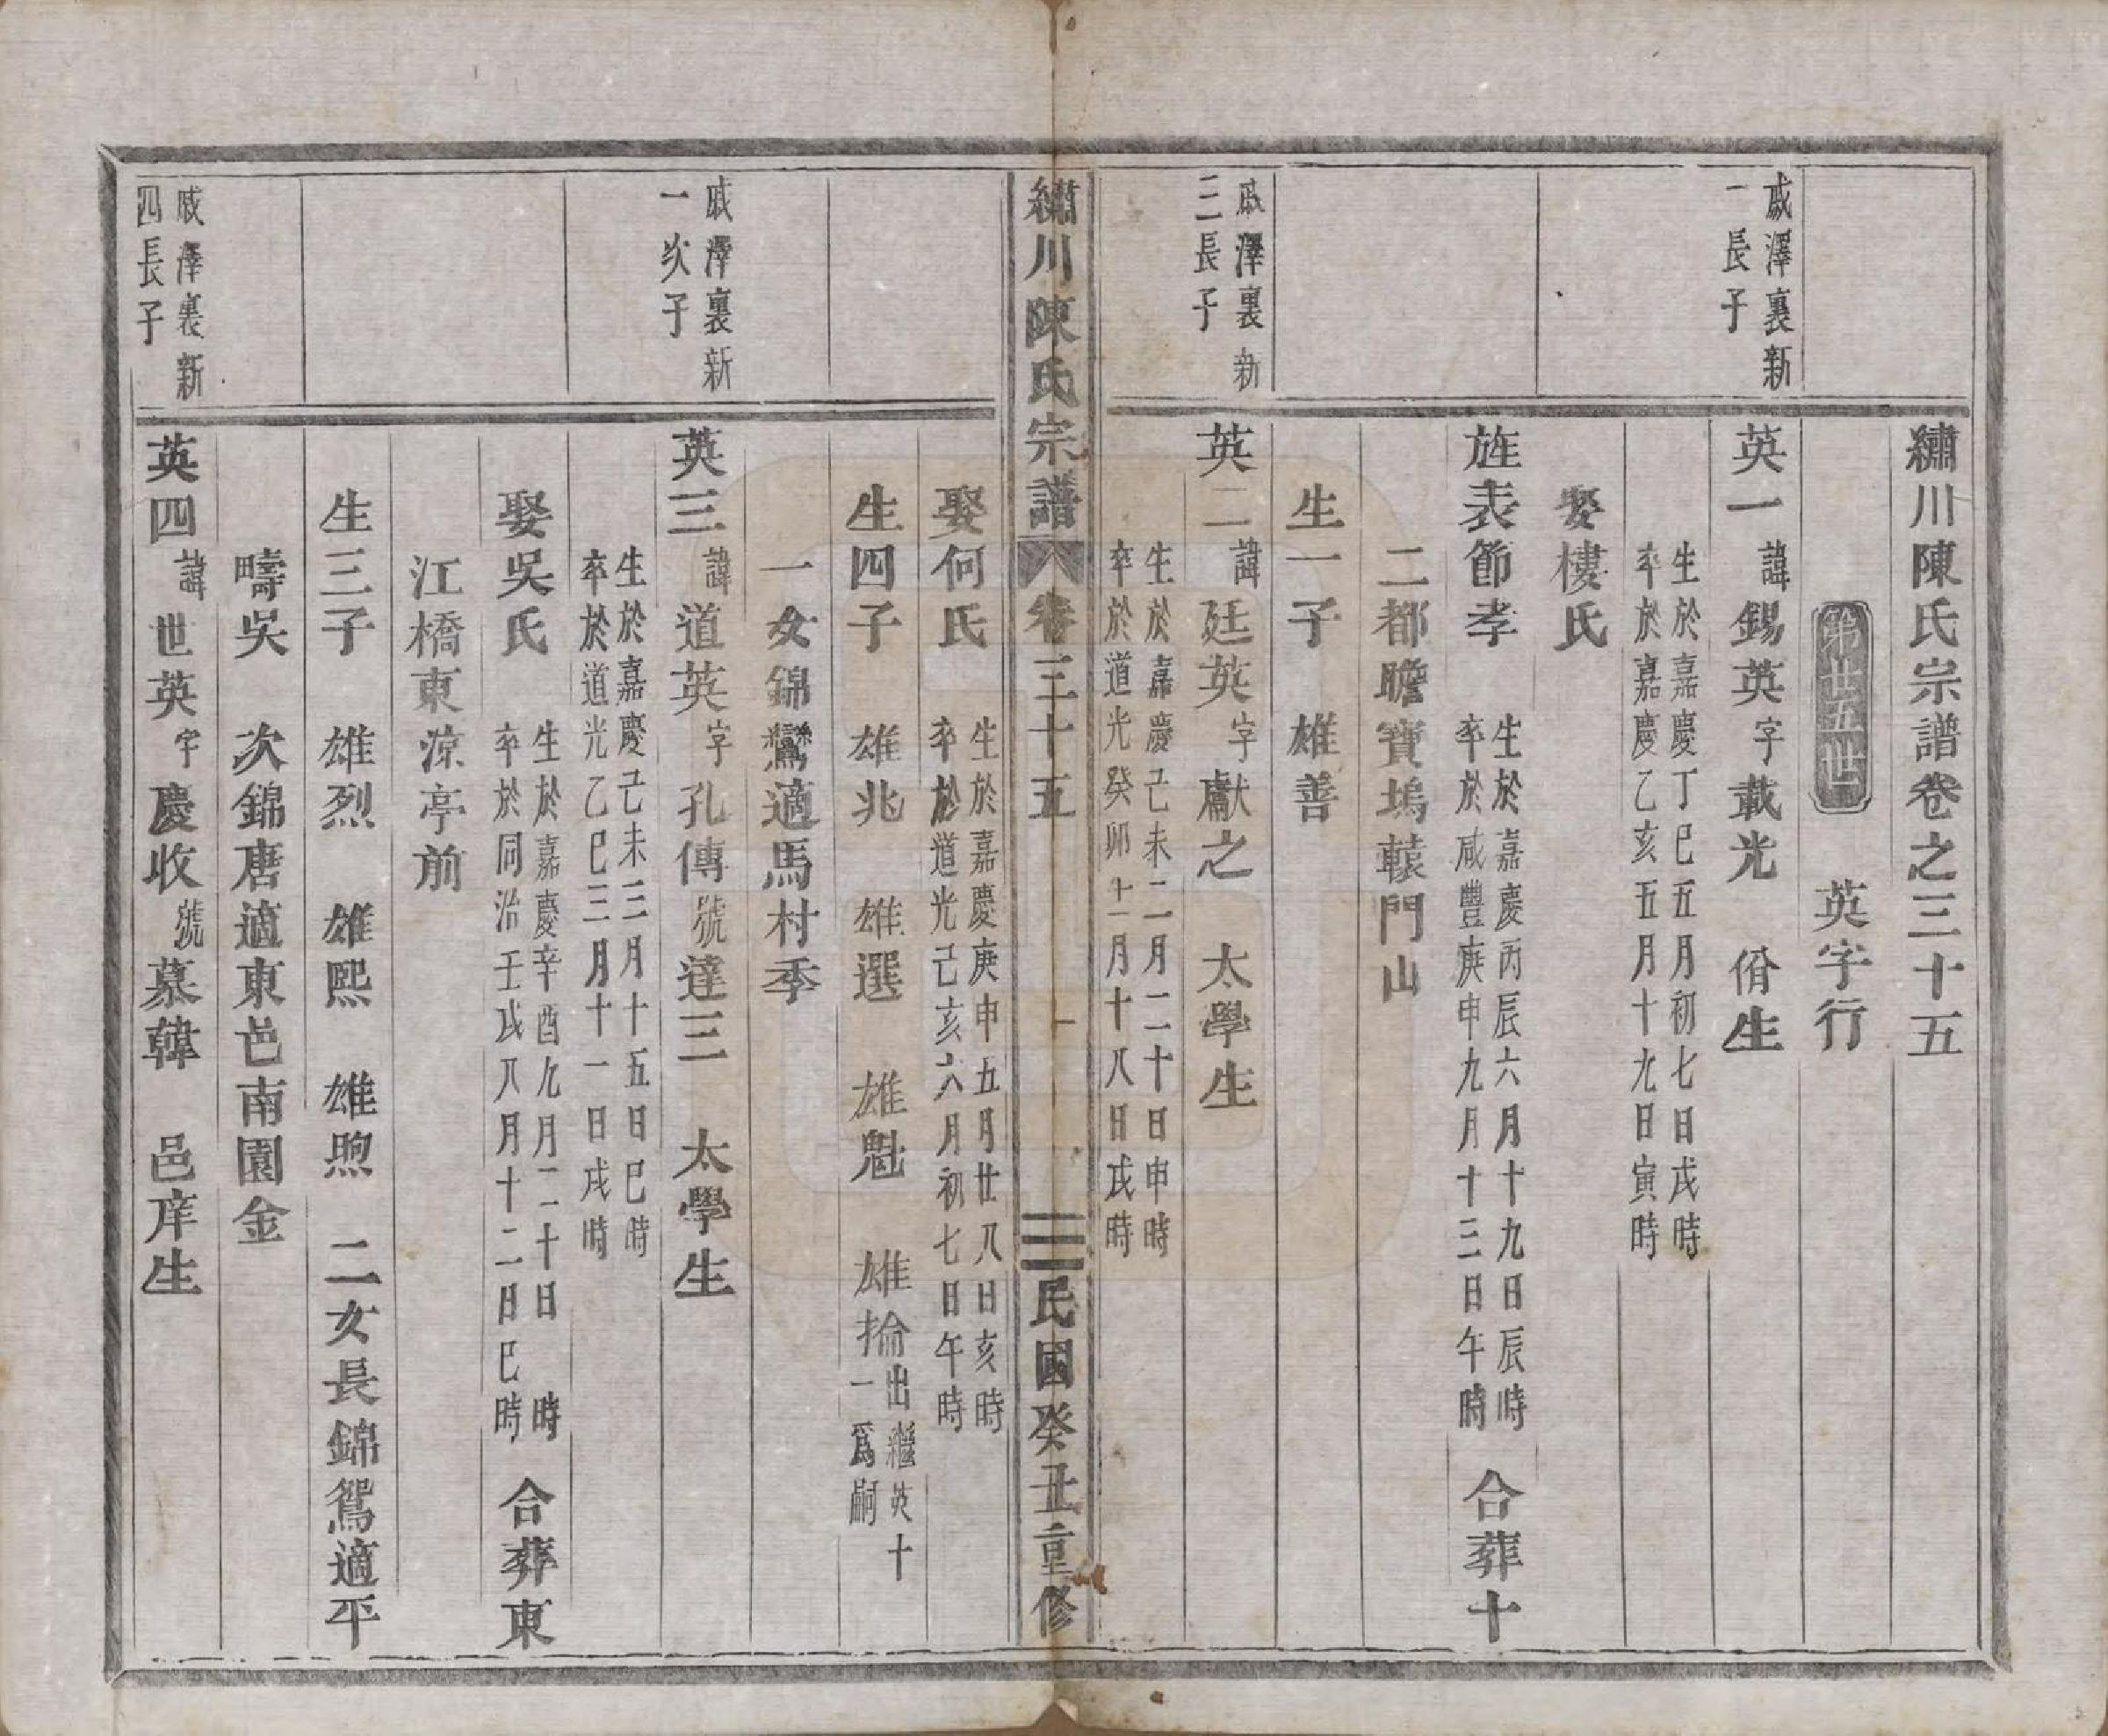 繡川陳氏宗譜卷之三十五
第廿五世　英字行
戚澤裏新
一長子
英一諱錫英字載光　佾生
生於嘉慶丁巳五月初七日戌時
卒於嘉慶乙亥五月十九日寅時
娶樓氏
旌表節孝
生於嘉慶丙辰六月十九日辰時
卒於咸豐庚申九月十三日午時
合葬十
二都瞻寶塢轅門山
生一子　雄善
戚澤裏新
二長子
英二諱廷英字獻之　太學生
生於嘉慶己未二月二十日申時
卒於道光癸卯十一月十八日戌時
繡川陳氏宗譜　卷三十五　一　民國癸丑重修
娶何氏
生於嘉慶庚申五月廿八日亥時
卒於道光己亥六月初七日午時
生四子　雄兆　雄選　雄魁　雄掄
出繼英十
一爲嗣
一女錦鸞適馬村季
戚澤裏新
一次子
英三諱道英字孔傳號達三　太學生
生於嘉慶己未三月十五日巳時
卒於道光乙巳三月十一日戌時
娶吳氏
生於嘉慶辛酉九月二十日　時
卒於同治壬戌八月十二日巳時
合葬東
江橋東涼亭前
生三子　雄烈　雄熙　雄煦　二女長錦鴛適平
疇吳　次錦唐適東邑南園金
戚澤裏新
四長子
英四諱世英字慶收號慕韓　邑庠生